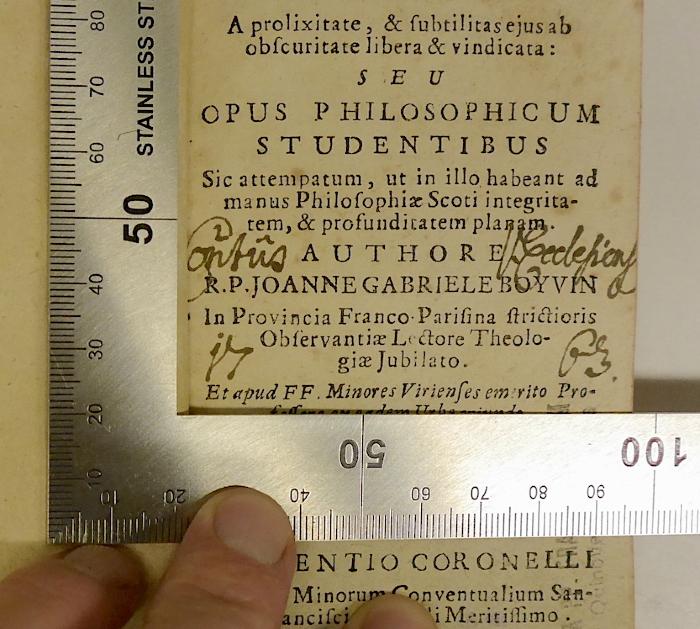 A prolixitate, & ſubtilitas ejus ab
obſcuritate libera & vindicata:
SEU
OPUS PHILOSOPHICUM
STUDENTIBUS
Sic attempatum, ut in illo habeant ad
manus Philoſophiæ Scoti integrita-
tem, & profunditatem planam.
AUTHORE
R.P. JOANNE GABRIELE BOYVIN
In Provincia Franco-Pariſina ſtrictioris
Obſervantiæ Lectore Theolo-
giæ Jubilato.
17 63.
Et apud FF. Minores Virienſes emerito Pro-
ENTIO CORONELLI
Minorum Conventualium San-
Meritiſſimo.
STAINLESS ST
80
70
60
50
40
30
20
10
10 20 40 50 60 70 80 90 100